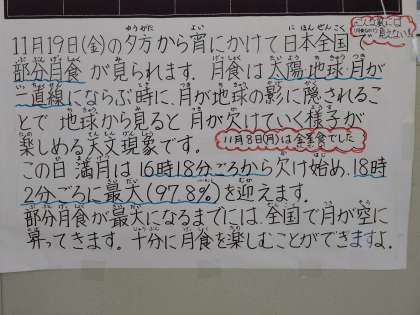 11月19日(金)の夕方から宵にかけて日本全国で
部分月食が見られます。月食は太陽・地球・月が
一直線にならぶ時に、月が地球の影に隠されるこ
とで地球から見ると月が欠けていく様子が
楽しめる天文現象です。
11月8日(月)は金星食でした
この日満月は16時18分ごろから欠け始め、18時
2分ごろに最大(97.8%)を迎えます。
部分月食が最大になるまでには、全国で月が空に
昇ってきます。十分に月食を楽しむことができますよ。